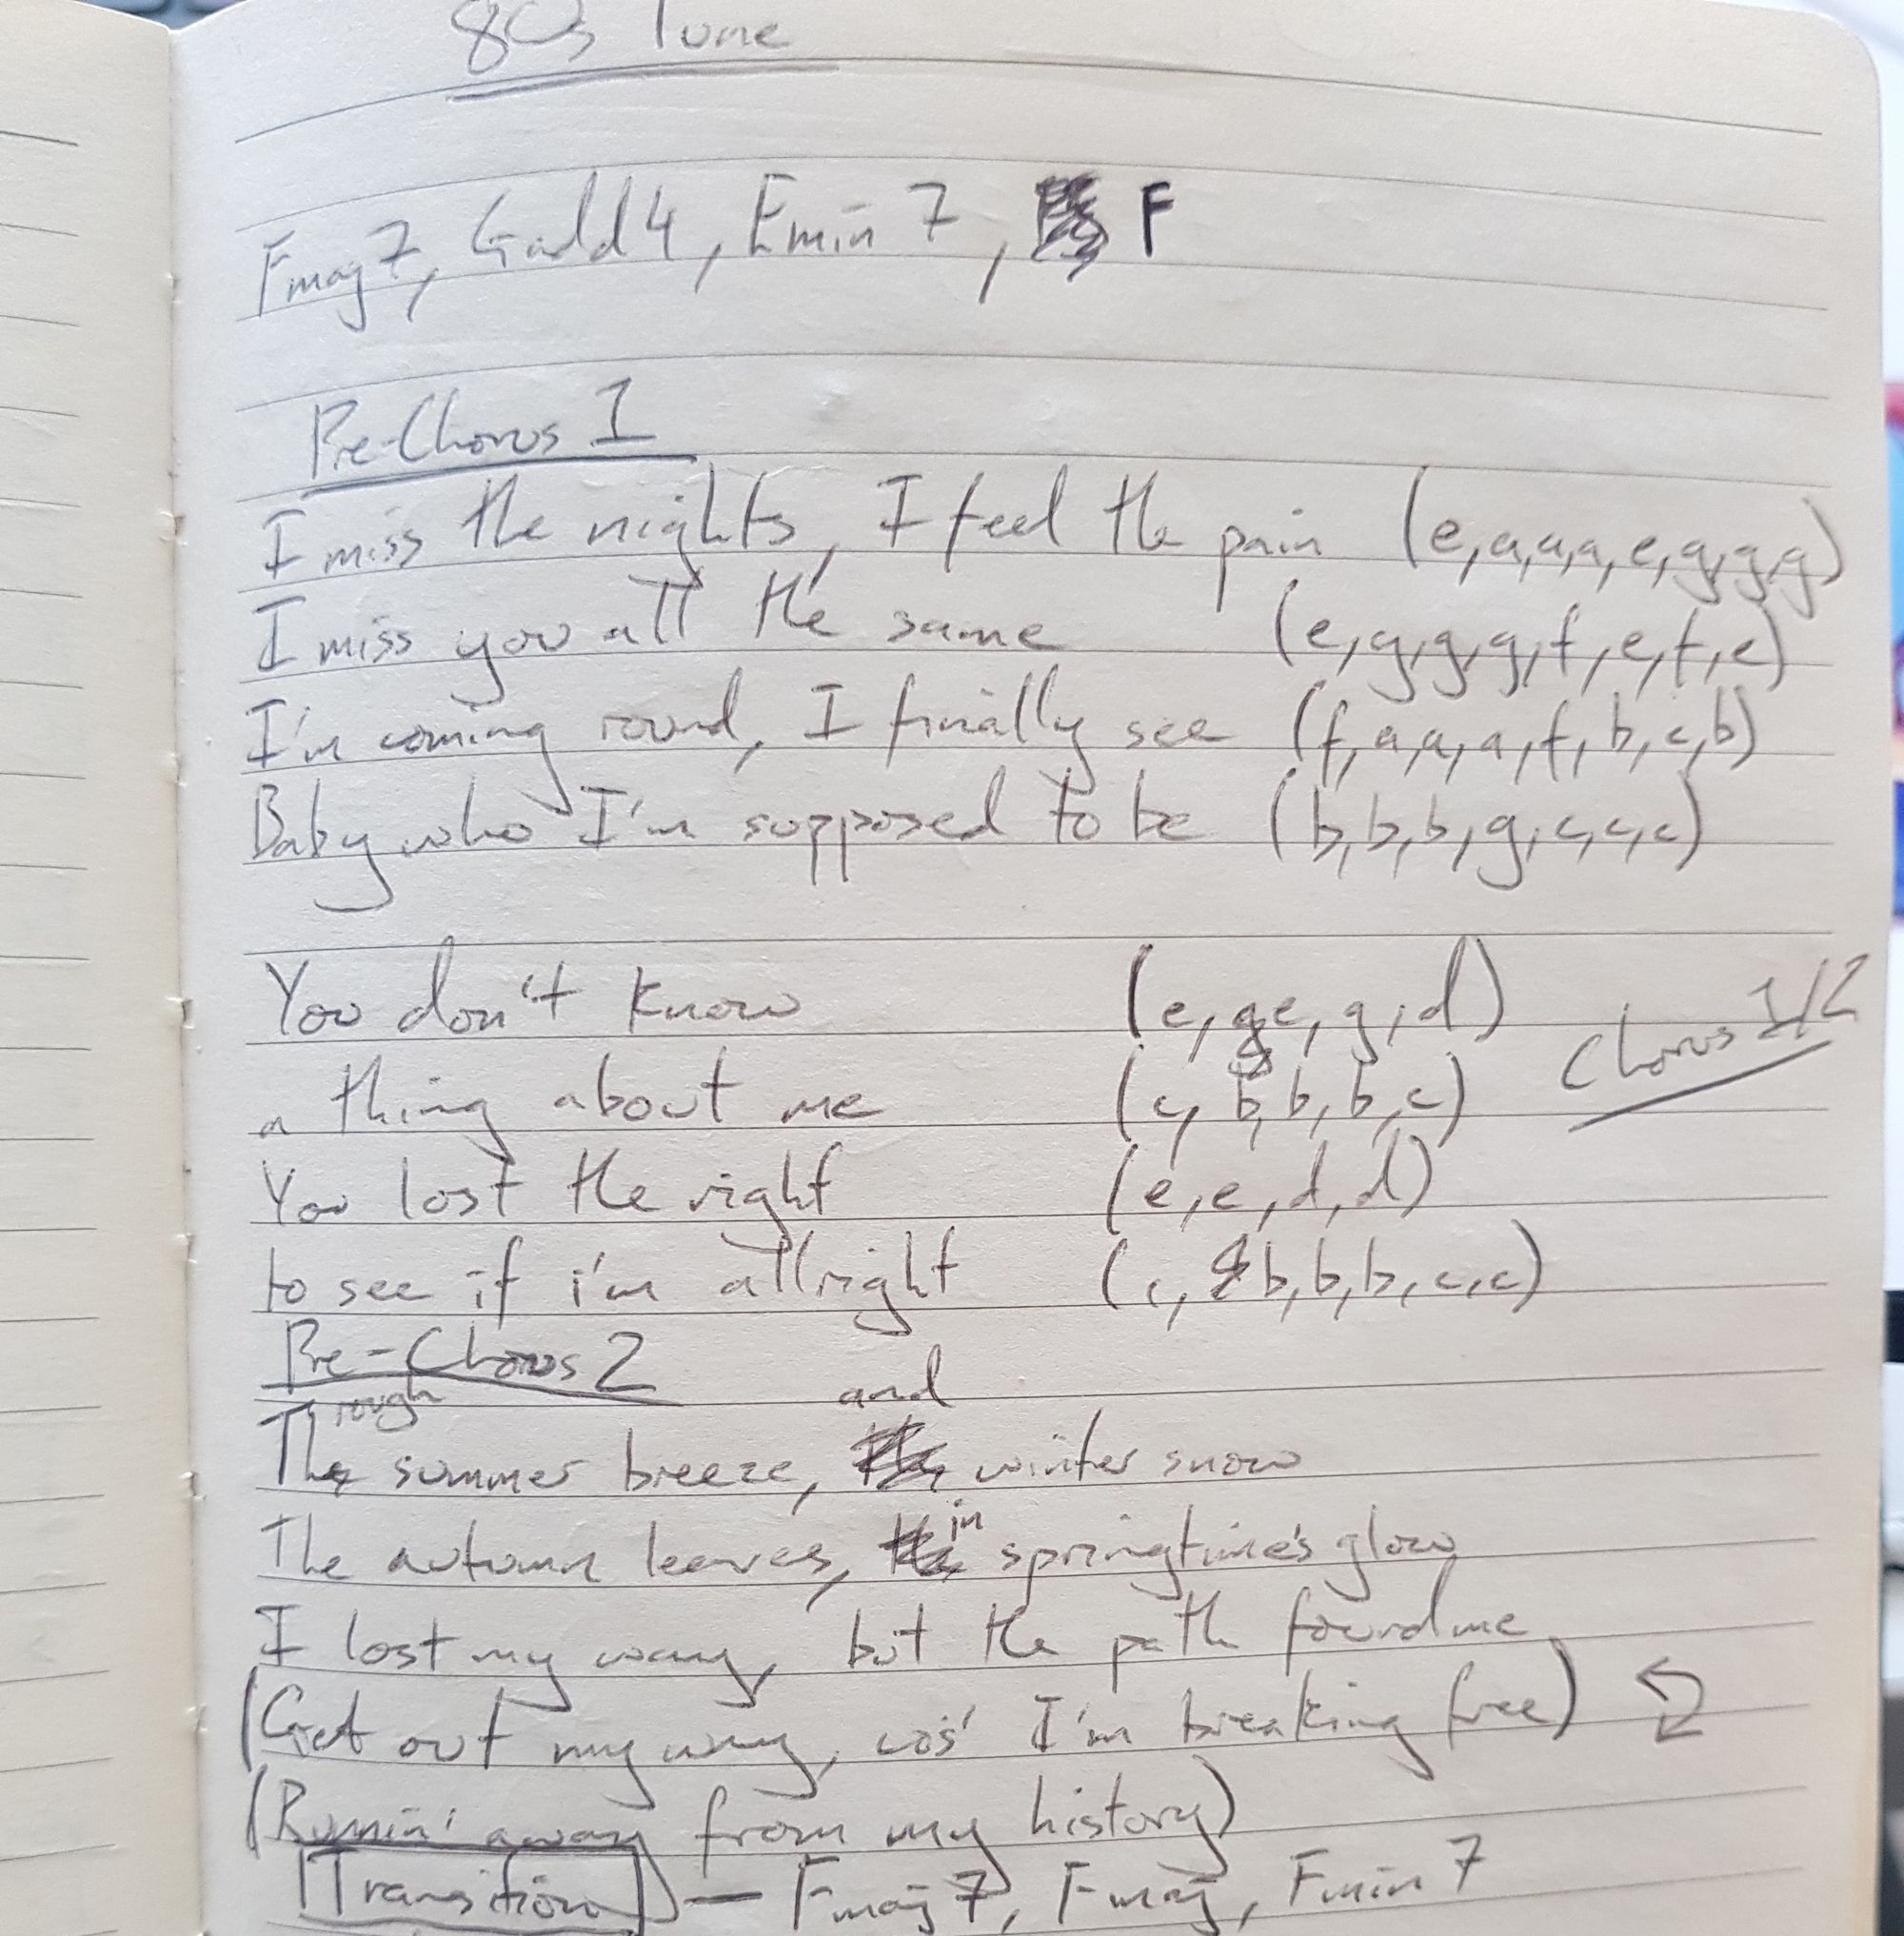 80s Tune
Fmaj7, Gadd4, Emin7, F
Pre-Chorus 1
I miss the nights, I feel the pain (e,a,a,a,e,g,g,g)
I miss you all the same (e,g,g,g,f,e,f,e)
I'm coming round, I finally see (f,a,a,a,f,b,c,b)
Baby who I'm supposed to be (b,b,b,g,c,c,c)
You don't know (e,ge,g,d)
Chorus 1/2
a thing about me (c,b,b,b,c)
You lost the right (e,e,d,d)
to see if i'm allright (c,b,b,b,c,c)
Pre-Chorus 2
Through summer breeze, and winter snow
The autumn leaves, in springtime's glow
I lost my way, but the path found me
(Get out my way, cos' I'm breaking free)
(Runnin' away from my history)
Transition — Fmaj7, Fmaj, Fmin7